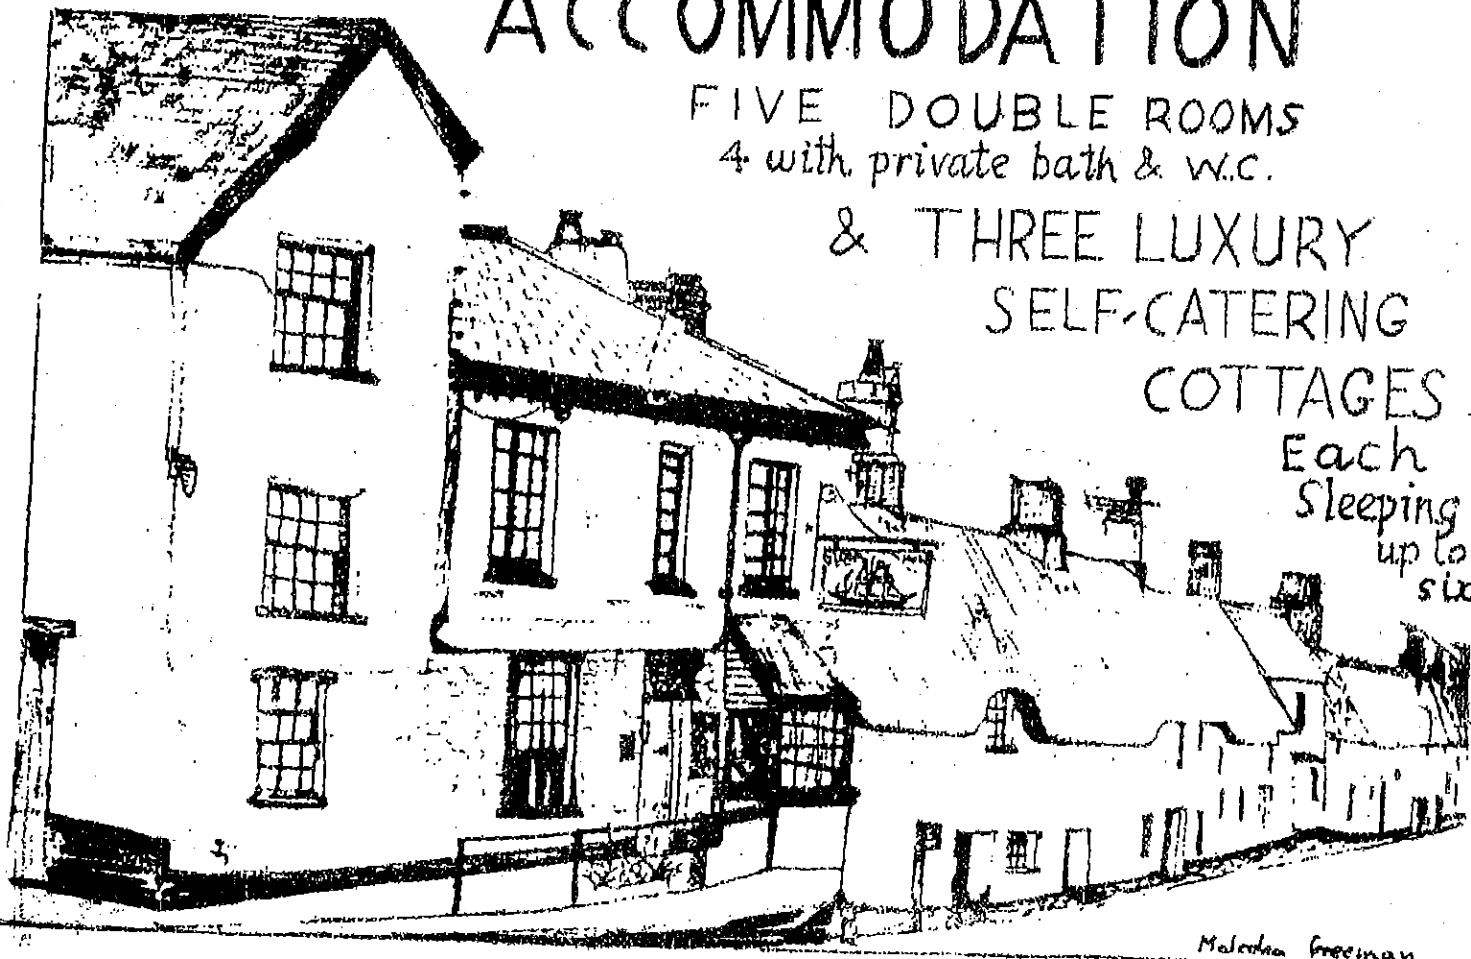 ACCOMMODATION
FIVE DOUBLE ROOMS
4 with private bath & W.C.
& THREE LUXURY
SELF-CATERING
COTTAGES
Each
Sleeping
up to
six
Malcolm Freeman